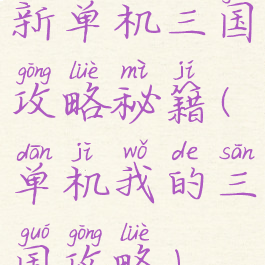 新单机三国
gōng lüè mì jí
攻略秘籍(
dān jī wǒ de sān
单机我的三
guó gōng lüè
国攻略)